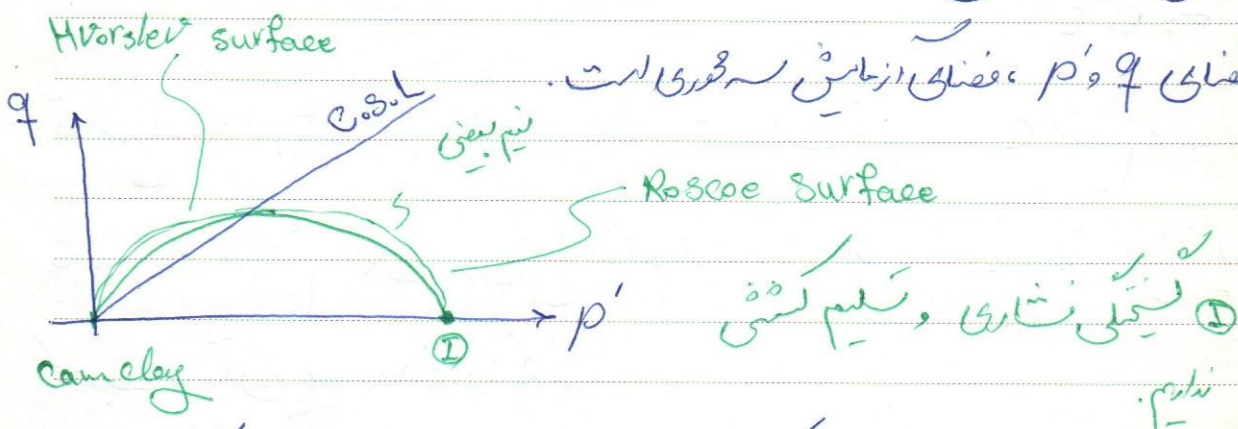 Hvorslev surface
فضای q و p' ، فضای آزمایش سه محوری است.
q
C.S.L
نیم بیضی
Roscoe surface
p'
① گسیختگی فشاری و تسلیم کششی
نداریم.
①
cam clay